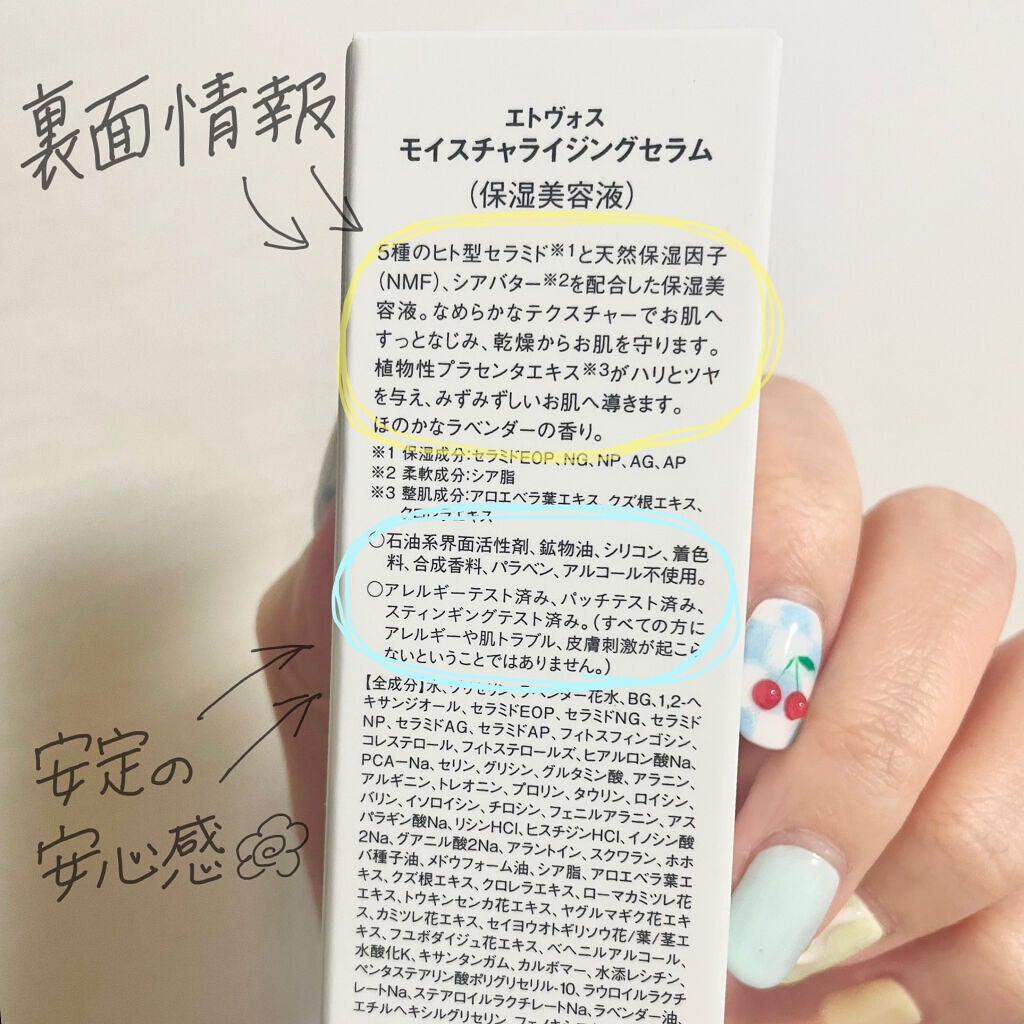 裏面情報
エトヴォス
モイスチャライジングセラム
(保湿美容液)
5種のヒト型セラミド※1と天然保湿因子
(NMF)、シアバター※2を配合した保湿美
容液。なめらかなテクスチャーでお肌へ
すっとなじみ、乾燥からお肌を守ります。
植物性プラセンタエキス※3がハリとツヤ
を与え、みずみずしいお肌へ導きます。
ほのかなラベンダーの香り。
※1 保湿成分:セラミドEOP、NG、NP、AG、AP
※2 柔軟成分:シア脂
※3 整肌成分:アロエベラ葉エキス、クズ根エキス、
クロレラエキス
○石油系界面活性剤、鉱物油、シリコン、着色
料、合成香料、パラベン、アルコール不使用。
○アレルギーテスト済み、パッチテスト済み、
スティンギングテスト済み。(すべての方に
アレルギーや肌トラブル、皮膚刺激が起こら
ないということではありません。)
安定の
安心感
【全成分】水、グリセリン、ラベンダー花水、BG、1,2-ヘ
キサンジオール、セラミドEOP、セラミドNG、セラミド
NP、セラミドAG、セラミドAP、フィトスフィンゴシン、
コレステロール、フィトステロールズ、ヒアルロン酸Na、
PCA-Na、セリン、グリシン、グルタミン酸、アラニン、
アルギニン、トレオニン、プロリン、タウリン、ロイシン、
バリン、イソロイシン、チロシン、フェニルアラニン、アス
パラギン酸Na、リシンHCl、ヒスチジンHCl、イノシン酸
2Na、グアニル酸2Na、アラントイン、スクワラン、ホホ
バ種子油、メドウフォーム油、シア脂、アロエベラ葉エ
キス、クズ根エキス、クロレラエキス、ローマカミツレ花
エキス、トウキンセンカ花エキス、ヤグルマギク花エキ
ス、カミツレ花エキス、セイヨウオトギリソウ花/葉/茎エ
キス、フユボダイジュ花エキス、ベヘニルアルコール、
水酸化K、キサンタンガム、カルボマー、水添レシチン、
ペンタステアリン酸ポリグリセリル-10、ラウロイルラクチ
レートNa、ステアロイルラクチレートNa、ラベンダー油、
エチルヘキシルグリセリン、フェノキシ